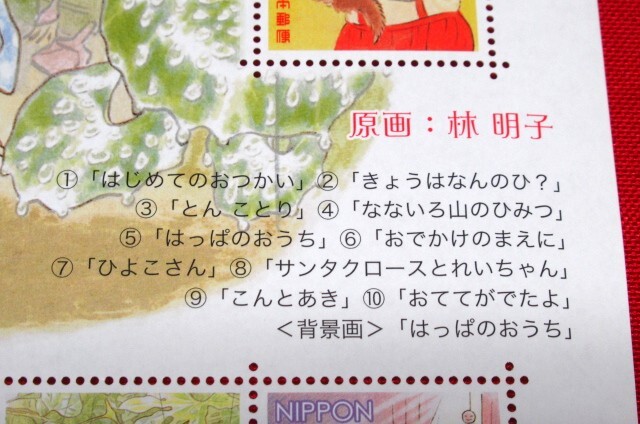 本郵便
原画：林 明子
①「はじめてのおつかい」②「きょうはなんのひ？」
③「とん ことり」④「なないろ山のひみつ」
⑤「はっぱのおうち」⑥「おでかけのまえに」
⑦「ひよこさん」⑧「サンタクロースとれいちゃん」
⑨「こんとあき」⑩「おててがでたよ」
＜背景画＞「はっぱのおうち」
NIPPON